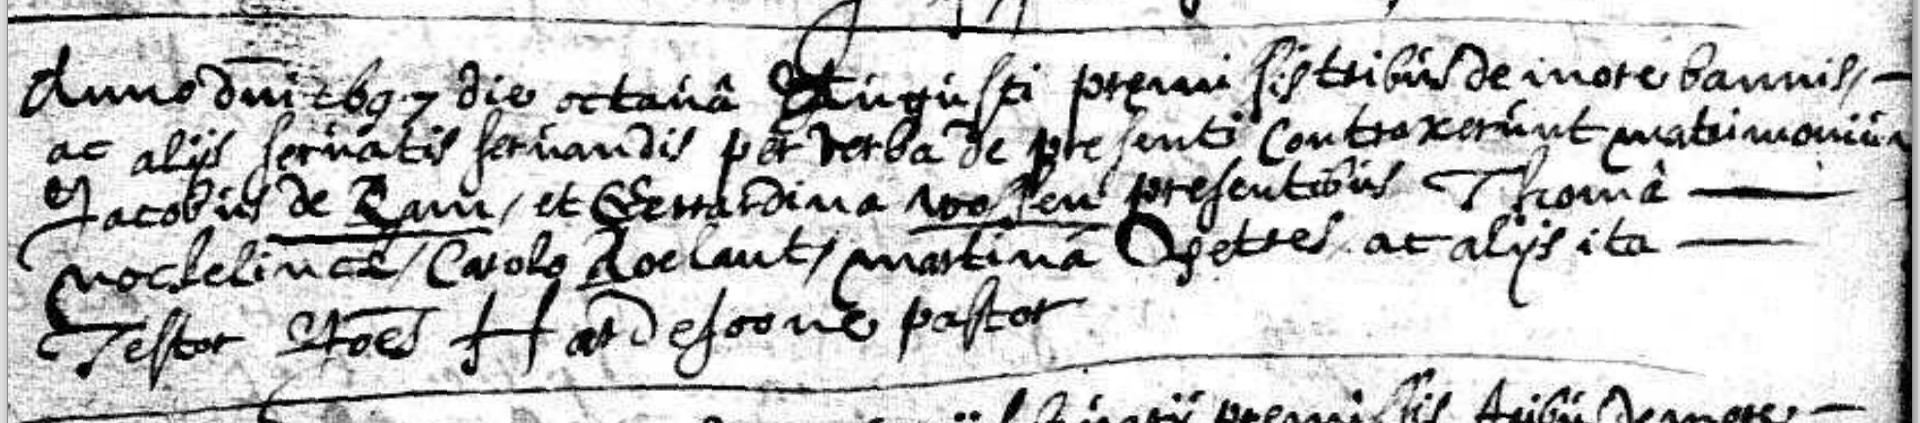 Anno dni 1697 die octauâ Augusti premissis tribus de more bannis, —
ac alijs seruatis seruandis per verba de presenti Contraxerunt matrimonium
Jacobus de Ram, et Gerrardina vossen presentibus Thomâ —
nockelinck, Carolo Roelant, martinâ Opetres ac alijs ita —
Testor Joēs Hardeshoone pastor
premissis tribus de more —